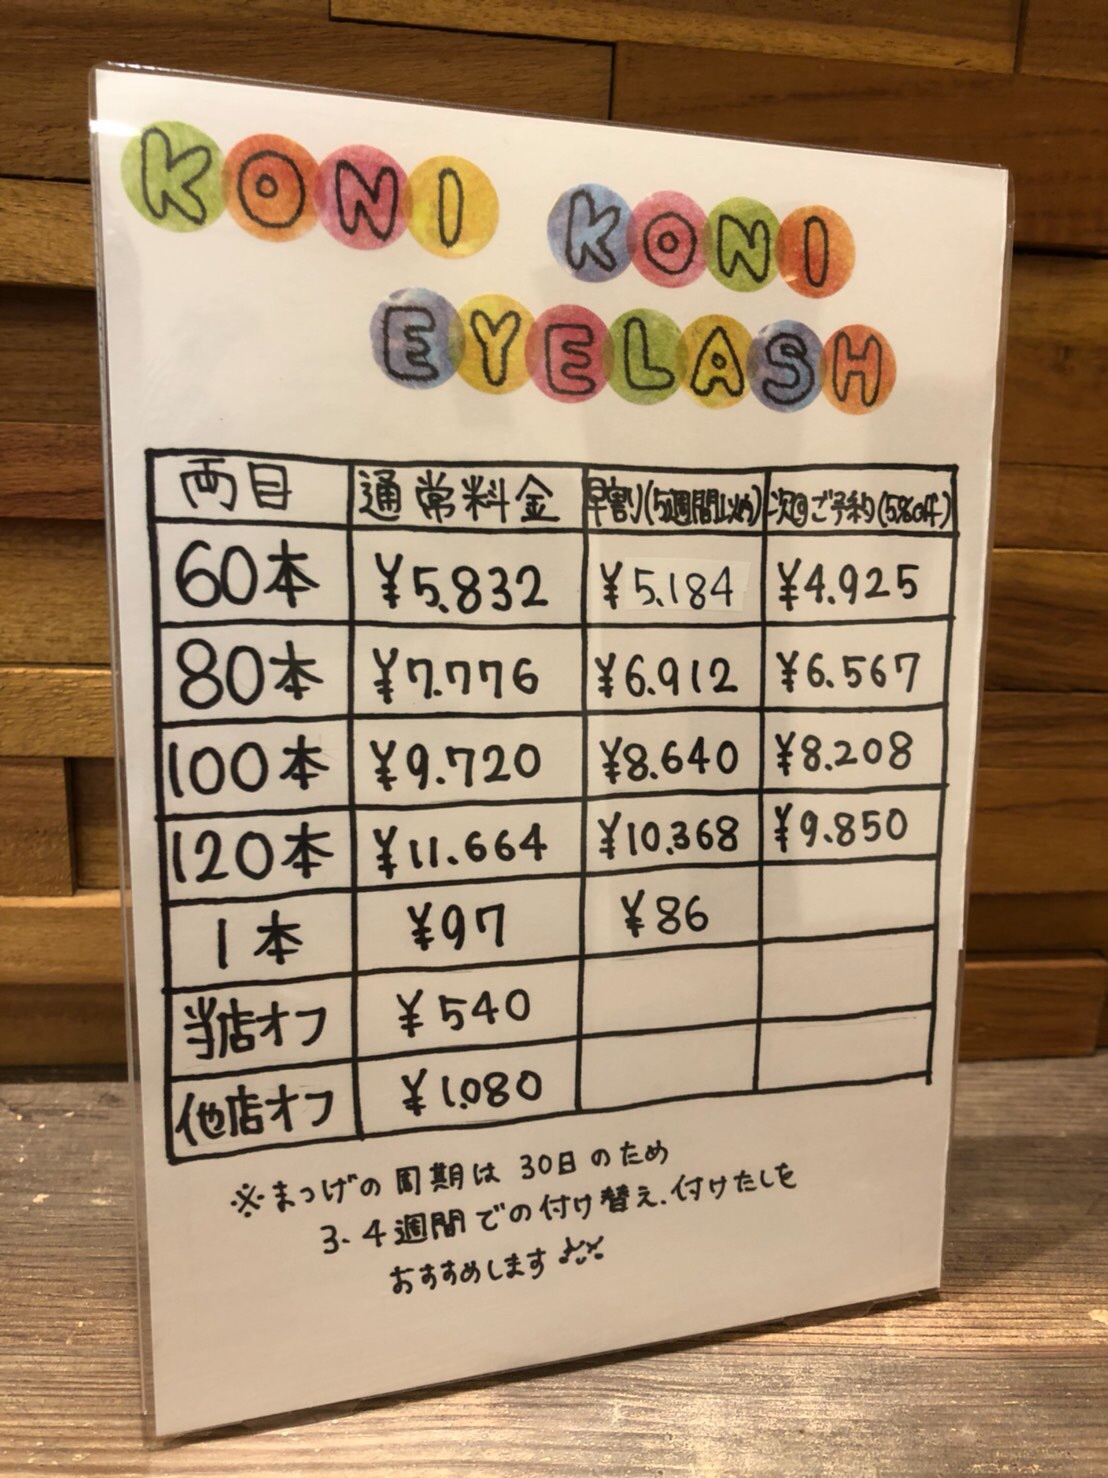 KONI KONI
EYELASH
両目 通常料金 早割り(5週間以内) 次回ご予約(5%off)
60本 ¥5.832 ¥5.184 ¥4.925
80本 ¥7.776 ¥6.912 ¥6.567
100本 ¥9.720 ¥8.640 ¥8.208
120本 ¥11.664 ¥10.368 ¥9.850
1本 ¥97 ¥86
当店オフ ¥540
他店オフ ¥1.080
※まつげの周期は30日のため
3.4週間での付け替え.付けたしを
おすすめします